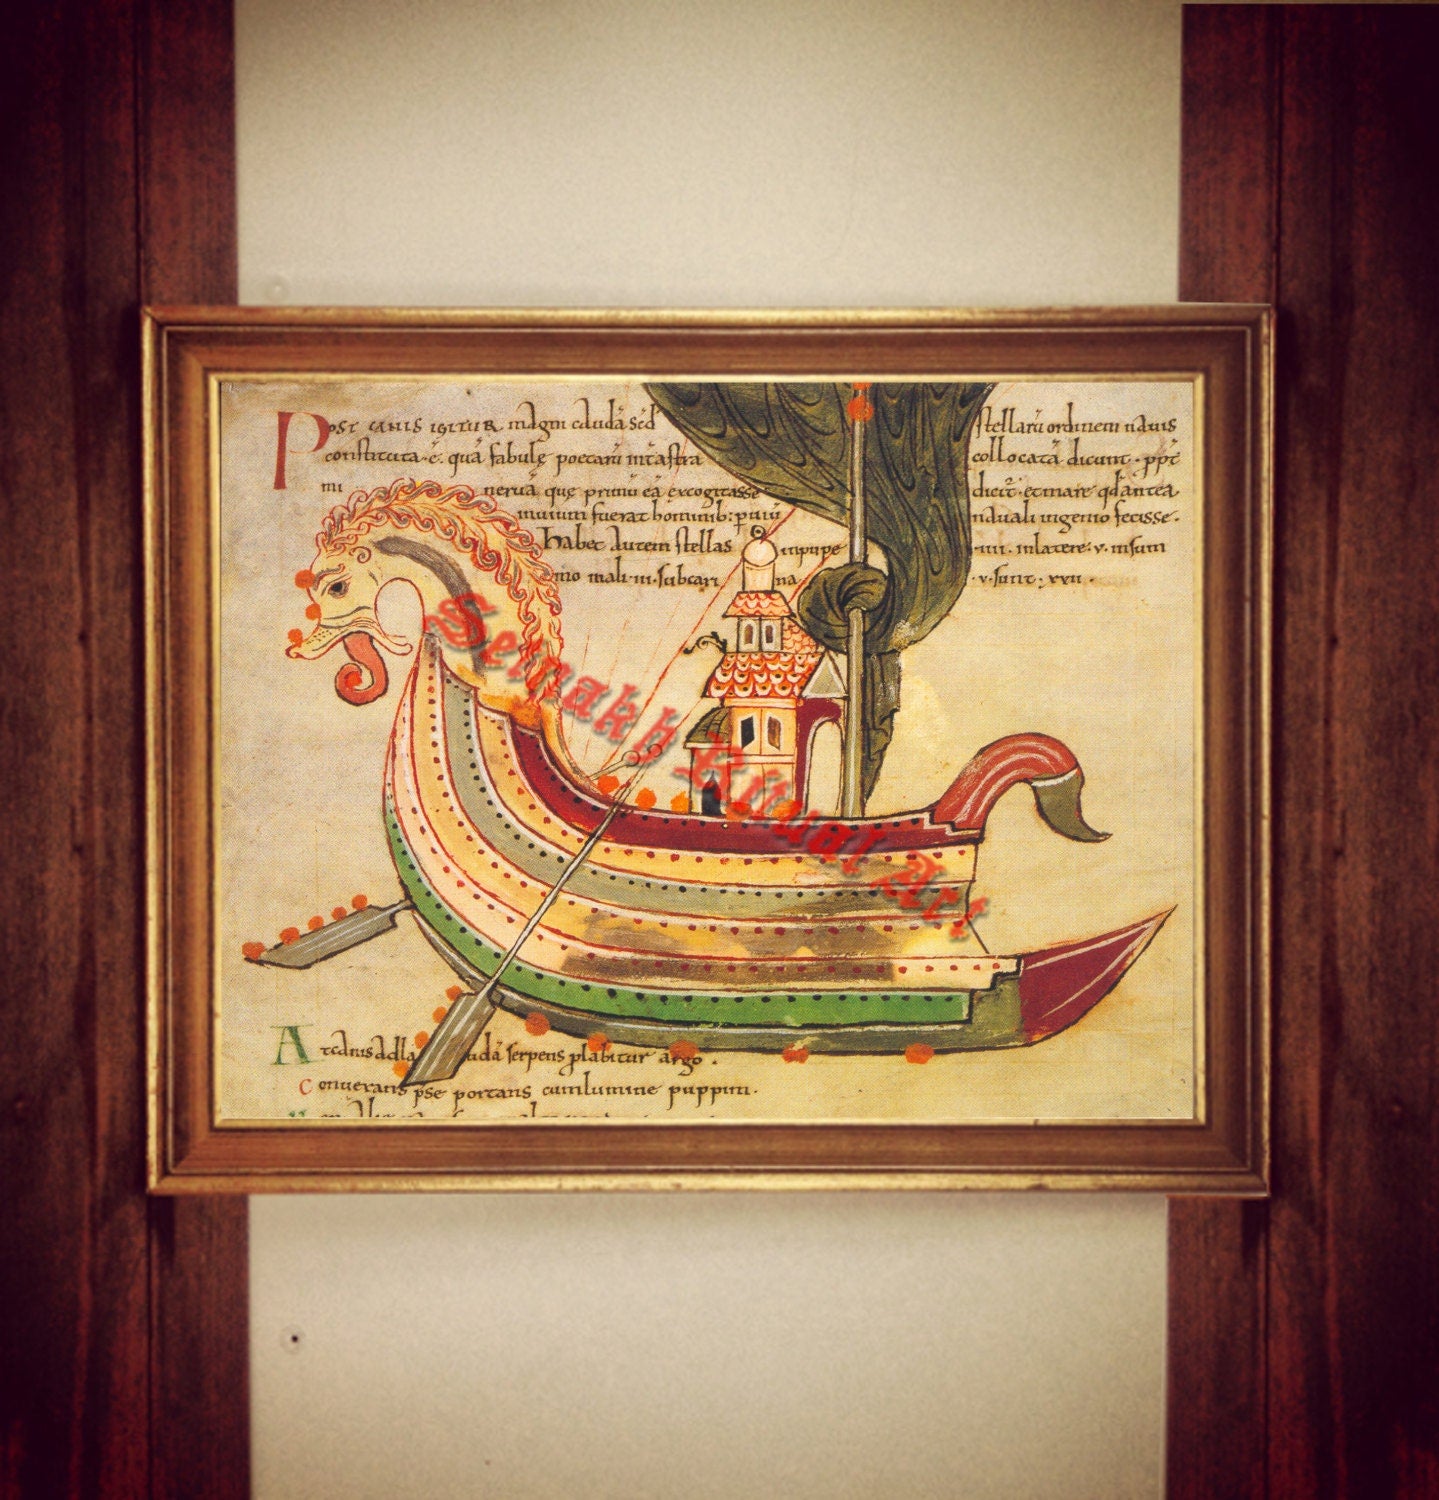 Post canis igitur magni caudā sed stellarū ordinem nauis
constituta·ē· quā fabulę poetarū intastra collocatā dicunt · ppt
mineruā que primū eā excogitasse dicit· et mare qd antea
inuium fuerat hominib: puiū nauali ingenio fecisse·
habet autem stellas inpupe ·IIII· inlatere·v·insum
mo mali·III·subcarina ·v·sunt·xxII·
Semakh Ritual Art
At canis adla udā serpens plabitur argo ·
Conuerans pse portans cumlumine puppim·